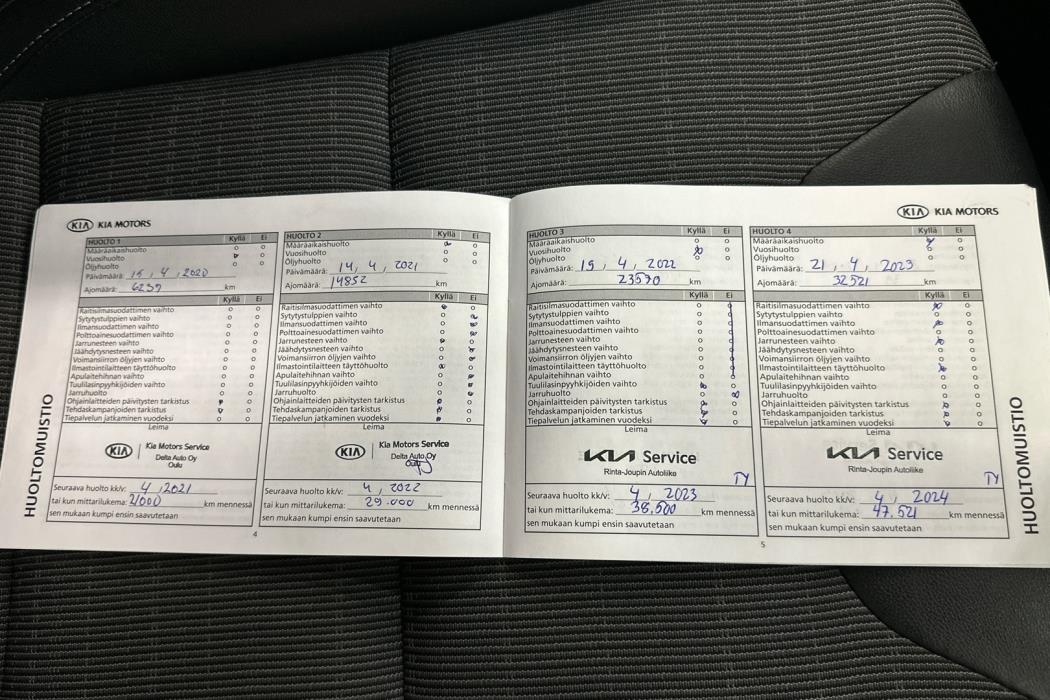 KIA KIA MOTORS
HUOLTO 1 Kyllä Ei
Määräaikaishuolto
Vuosihuolto
Öljyhuolto
Päivämäärä: 15, 4, 2020
Ajomäärä: 6239 km
Kyllä Ei
Raitisilmasuodattimen vaihto
Sytytystulppien vaihto
Ilmansuodattimen vaihto
Polttoainesuodattimen vaihto
Jarrunesteen vaihto
Jäähdytysnesteen vaihto
Voimansiirron öljyjen vaihto
Ilmastointilaitteen täyttöhuolto
Apulaitehihnan vaihto
Tuulilasinpyyhkijöiden vaihto
Jarruhuolto
Ohjainlaitteiden päivitysten tarkistus
Tehdaskampanjoiden tarkistus
Tiepalvelun jatkaminen vuodeksi
Leima
KIA Kia Motors Service
Delta Auto Oy
Oulu
Seuraava huolto kk/v: 4, 2021
tai kun mittarilukema: 21000 km mennessä
sen mukaan kumpi ensin saavutetaan
HUOLTO 2 Kyllä Ei
Määräaikaishuolto
Vuosihuolto
Öljyhuolto
Päivämäärä: 14, 4, 2021
Ajomäärä: 14852 km
Kyllä Ei
Raitisilmasuodattimen vaihto
Sytytystulppien vaihto
Ilmansuodattimen vaihto
Polttoainesuodattimen vaihto
Jarrunesteen vaihto
Jäähdytysnesteen vaihto
Voimansiirron öljyjen vaihto
Ilmastointilaitteen täyttöhuolto
Apulaitehihnan vaihto
Tuulilasinpyyhkijöiden vaihto
Jarruhuolto
Ohjainlaitteiden päivitysten tarkistus
Tehdaskampanjoiden tarkistus
Tiepalvelun jatkaminen vuodeksi
Leima
KIA Kia Motors Service
Delta Auto Oy
Oulu
Seuraava huolto kk/v: 4, 2022
tai kun mittarilukema: 29.000 km mennessä
sen mukaan kumpi ensin saavutetaan
HUOLTOMUISTIO
4
KIA KIA MOTORS
HUOLTO 3 Kyllä Ei
Määräaikaishuolto
Vuosihuolto
Öljyhuolto
Päivämäärä: 19, 4, 2022
Ajomäärä: 23570 km
Kyllä Ei
Raitisilmasuodattimen vaihto
Sytytystulppien vaihto
Ilmansuodattimen vaihto
Polttoainesuodattimen vaihto
Jarrunesteen vaihto
Jäähdytysnesteen vaihto
Voimansiirron öljyjen vaihto
Ilmastointilaitteen täyttöhuolto
Apulaitehihnan vaihto
Tuulilasinpyyhkijöiden vaihto
Jarruhuolto
Ohjainlaitteiden päivitysten tarkistus
Tehdaskampanjoiden tarkistus
Tiepalvelun jatkaminen vuodeksi
Leima
KIA Service
Rinta-Joupin Autoliike
TY
Seuraava huolto kk/v: 4, 2023
tai kun mittarilukema: 38.500 km mennessä
sen mukaan kumpi ensin saavutetaan
HUOLTO 4 Kyllä Ei
Määräaikaishuolto
Vuosihuolto
Öljyhuolto
Päivämäärä: 21, 4, 2023
Ajomäärä: 32521 km
Kyllä Ei
Raitisilmasuodattimen vaihto
Sytytystulppien vaihto
Ilmansuodattimen vaihto
Polttoainesuodattimen vaihto
Jarrunesteen vaihto
Jäähdytysnesteen vaihto
Voimansiirron öljyjen vaihto
Ilmastointilaitteen täyttöhuolto
Apulaitehihnan vaihto
Tuulilasinpyyhkijöiden vaihto
Jarruhuolto
Ohjainlaitteiden päivitysten tarkistus
Tehdaskampanjoiden tarkistus
Tiepalvelun jatkaminen vuodeksi
Leima
KIA Service
Rinta-Joupin Autoliike
TY
Seuraava huolto kk/v: 4, 2024
tai kun mittarilukema: 47.521 km mennessä
sen mukaan kumpi ensin saavutetaan
HUOLTOMUISTIO
5